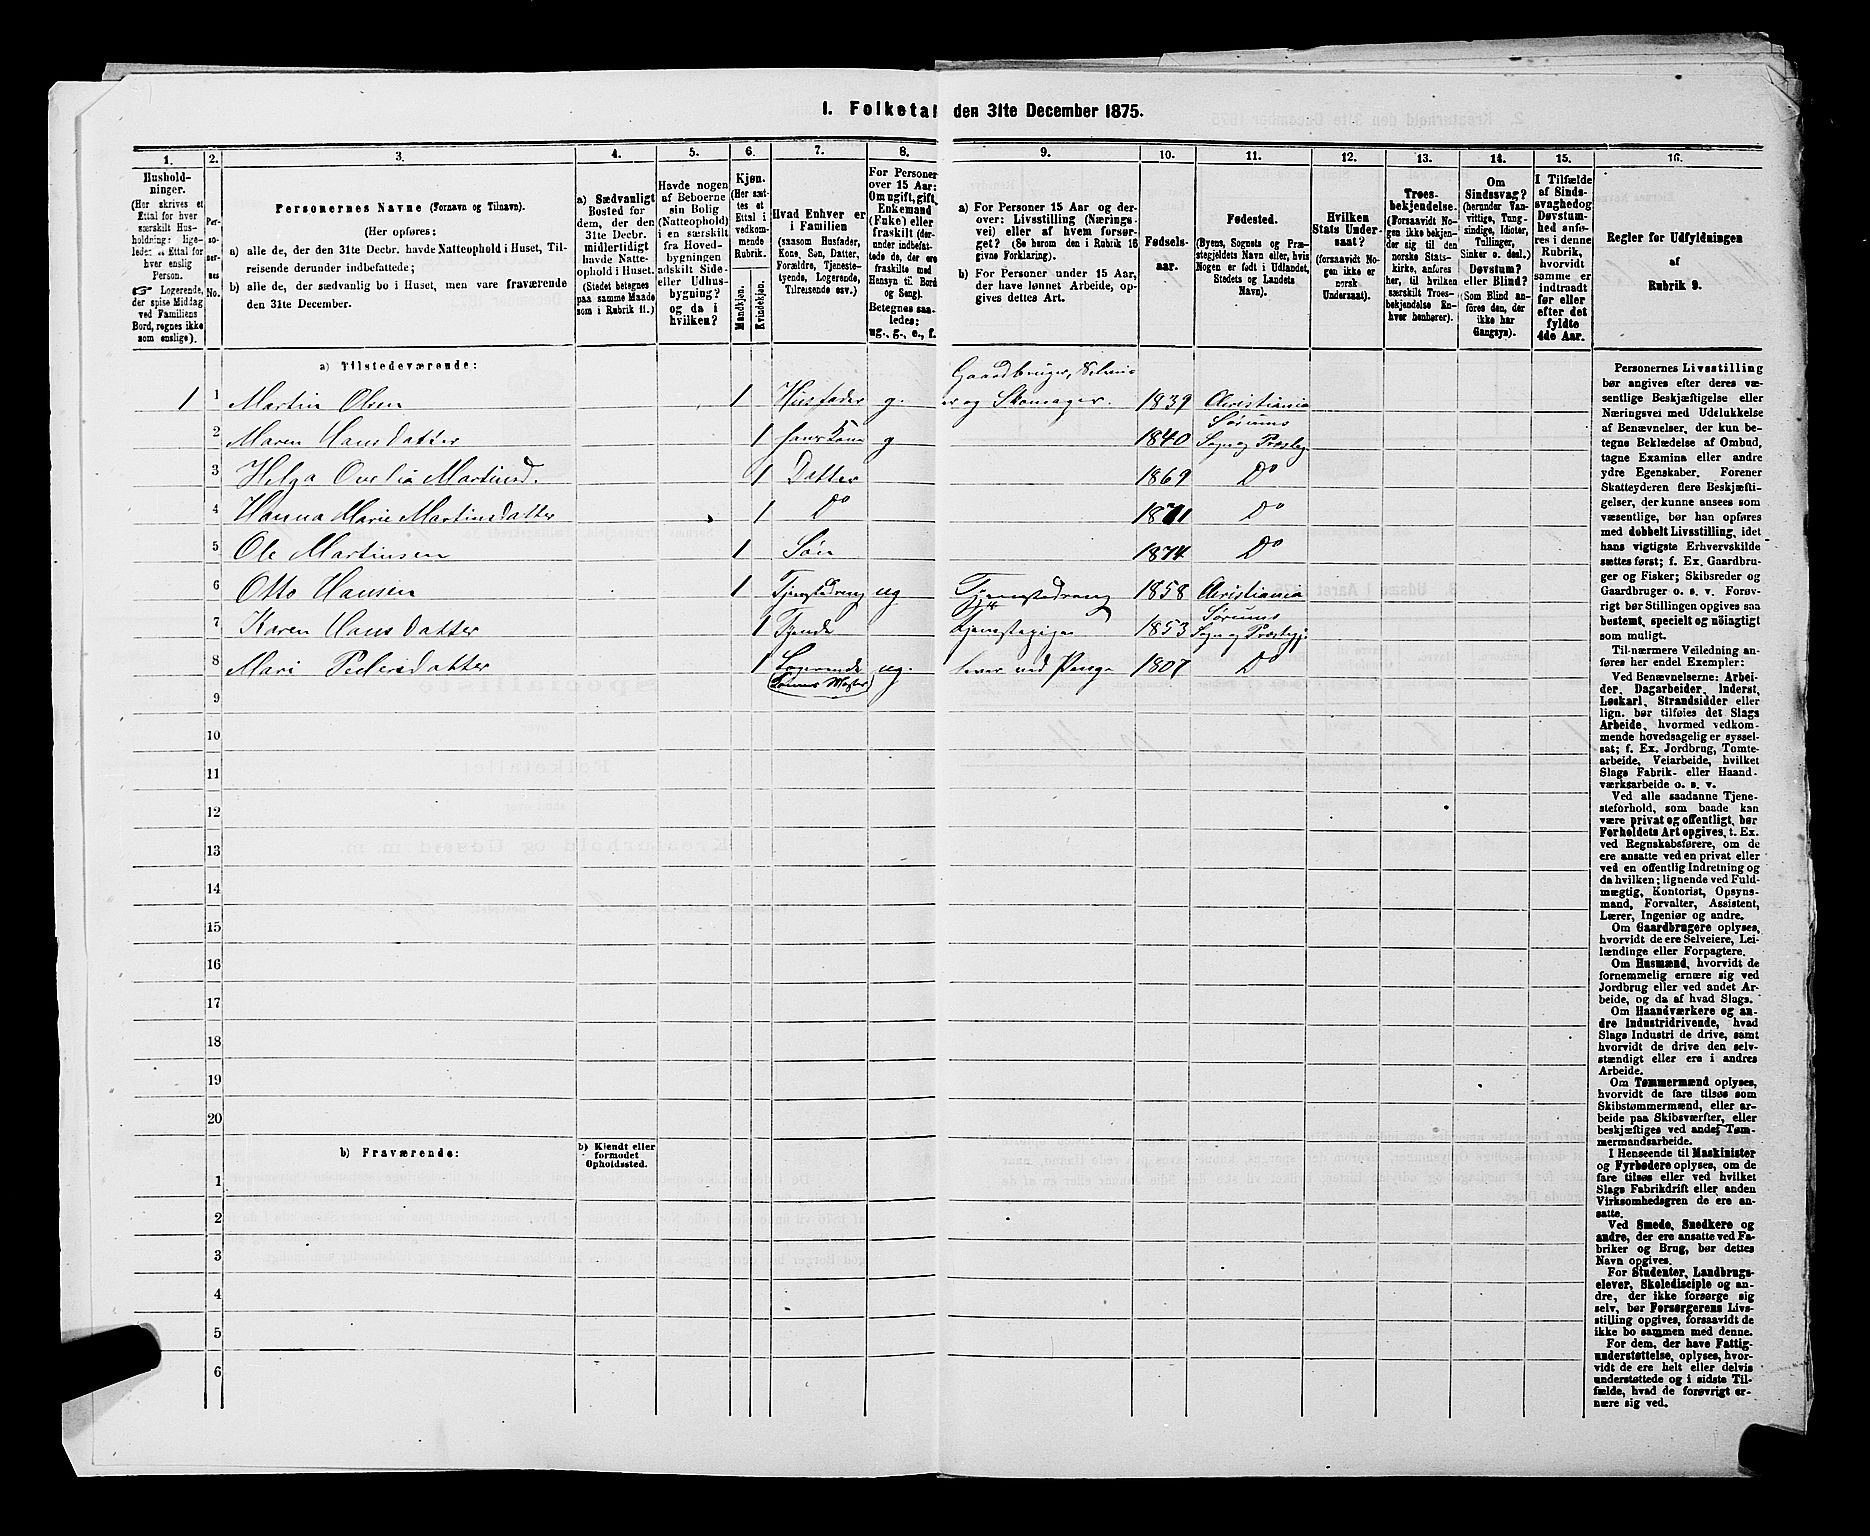 1. Folketal den 31te December 1875.
1. 2. 3. 4. 5. 6. 7. 8. 9. 10. 11. 12. 13. 14. 15. 16.
Hushold-
ninger.
(Her skrives et
Ettal for hver
særskilt Hus-
holdning; lige-
ledes et Ettal for
hver enslig
Person.
Logerende,
der spise Middag
ved Familiens
Bord, regnes ikke
som enslige).
Per-
so-
ner-
nes
No.
Personernes Navne (Fornavn og Tilnavn).
(Her opføres:
a) alle de, der den 31te Decbr. havde Natteophold i Huset, Til-
reisende derunder indbefattede;
b) alle de, der sædvanlig bo i Huset, men vare fraværende
den 31te December.
a) Sædvanligt
Bosted for
dem, der den
31te Decbr.
midlertidigt
havde Natte-
ophold i Huset.
(Stedet betegnes
paa samme Maade
som i Rubrik 11.)
Havde nogen
af Beboerne
sin Bolig
(Natteophold)
i en særskilt
fra Hoved-
bygningen
adskilt Side-
eller Udhus-
bygning?
og da i
hvilken?
Kjøn.
(Her sæt-
tes et
Ettal i
vedkom-
mende
Rubrik.
Mandkjøn.
Kvindekjøn.
Hvad Enhver er
i Familien
(saasom Husfader,
Kone, Søn, Datter,
Forældre, Tjeneste-
tyende, Logerende,
Tilreisende osv.)
For Personer
over 15 Aar:
Om ugift, gift,
Enkemand
(Enke) eller
fraskilt (der-
under indbefat-
tede de, der ere
fraskilte med
Hensyn til Bord
og Seng).
Betegnes saa-
ledes:
ug., g., e., f.
a) For Personer 15 Aar og der-
over: Livsstilling (Nærings-
vei) eller af hvem forsør-
get? (Se herom den i Rubrik 16
givne Forklaring).
b) For Personer under 15 Aar,
der have lønnet Arbeide, op-
gives dettes Art.
Fødsels-
aar.
Fødested.
(Byens, Sognets og Præ-
stegjeldets Navn eller, hvis
Nogen er født i Udlandet,
Stedets og Landets
Navn).
Hvilken
Stats Under-
saat?
(forsaavidt No-
gen ikke er
norsk
Undersaat).
Troes-
bekjendelse.
(Forsaavidt No-
gen ikke bekjen-
der sig til den
norske Stats-
kirke, anføres
her, til hvilken
særskilt Troes-
bekjendelse En-
hver henhører).
Om
Sindssvag?
(herunder Van-
vittige, Tung-
sindige, Idioter,
Tullinger,
Sinker o. desl.)
Døvstum?
eller Blind?
(Som Blind an-
føres den, der
ikke har
Gangsyn).
I Tilfælde
af Sinds-
svaghed og
Døvstum-
hed anfø-
res i denne
Rubrik,
hvorvidt
samme er
indtraadt
før eller
efter det
fyldte
4de Aar.
Regler for Udfyldningen
af
Rubrik 9.
a) Tilstedeværende:
1 1 Martin Olsen 1 Husfader g. Gaardbruger, Selveier og Skomager. 1839 Christiania
2 Maren Hansdatter 1 hans Kone g 1840 Sørums Sogn og Præstegj
3 Helga Ovelia Martinsd. 1 Datter 1869 Do
4 Hanna Marie Martinsdatter 1 Do 1871 Do
5 Ole Martinsen 1 Søn 1874 Do
6 Otto Hansen 1 Tjenestedreng ug Tjenestedreng 1858 Christiania
7 Karen Hansdatter 1 Tjende Tjenestepige 1853 Sørums Sogn og Præstegj.
8 Mari Pedersdatter 1 Logerende ug. lever ved Penge 1807 Do
9
10
11
12
13
14
15
16
17
18
19
20
b) Fraværende:
b) Kjendt eller
formodet
Opholdssted.
1
2
3
4
5
6
Personernes Livsstilling
bør angives efter deres væ-
sentlige Beskjæftigelse eller
Næringsvei med Udelukkelse
af Benævnelser, der kun be-
tegne Beklædelse af Ombud,
tagne Examina eller andre
ydre Egenskaber. Forener
Skatteyderen flere Beskjæfti-
gelser, der kunne ansees som
væsentlige, bør han opføres
med dobbelt Livsstilling, idet
hans vigtigste Erhvervskilde
sættes først; f. Ex. Gaardbru-
ger og Fisker; Skibsreder og
Gaardbruger o. s. v. Forøv-
rigt bør Stillingen opgives saa
bestemt, specielt og nöiagtigt
som muligt.
Til nærmere Veiledning an-
føres her endel Exempler:
Ved Benævnelserne: Arbei-
der, Dagarbeider, Inderst,
Løskarl, Strandsidder eller
lign. bør tilføies det Slags
Arbeide, hvormed vedkom-
mende hovedsagelig er syssel-
sat; f. Ex. Jordbrug, Tomte-
arbeide, Veiarbeide, hvilket
Slags Fabrik- eller Haand-
værksarbeide o. s. v.
Ved alle saadanne Tjene-
steforhold, som baade kan
være privat og offentligt, bør
Forholdets Art opgives, t. Ex.
ved Regnskabsførere, om de
ere ansatte ved en privat eller
ved en offentlig Indretning og
da hvilken; lignende ved Fuld-
mægtig, Kontorist, Opsyns-
mand, Forvalter, Assistent,
Lærer, Ingeniør og andre.
Om Gaardbrugere oplyses,
hvorvidt de ere Selveiere, Lei-
lændinge eller Forpagtere.
Om Husmænd, hvorvidt de
fornemmelig ernære sig ved
Jordbrug eller ved andet Ar-
beide, og da af hvad Slags.
Om Haandværkere og an-
dre Industridrivende, hvad
Slags Industri de drive, samt
hvorvidt de drive den selv-
stændigt eller ere i andres
Arbeide.
Om Tømmermænd oplyses,
hvorvidt de fare tilsøs som
Skibstømmermænd, eller ar-
beide paa Skibsværfter, eller
beskjæftiges ved andet Tøm-
mermandsarbeide.
I Henseende til Maskinister
og Fyrbødere oplyses, om de
fare tilsøs eller ved hvilket
Slags Fabrikdrift eller anden
Virksomhedsgren de ere an-
satte.
Ved Smede, Snedkere og
andre, der ere ansatte ved Fa-
briker og Brug, bør dettes
Navn opgives.
For Studenter, Landbrugs-
elever, Skoledisciple og an-
dre, der ikke forsørge sig
selv, bør Forsørgerens Livs-
stilling opgives, forsaavidt de
ikke bo sammen med denne.
For dem, der have Fattig-
understøttelse, oplyses, hvor-
vidt de ere helt eller delvis
understøttede og i sidste Til-
fælde, hvad de forøvrigt er-
nære sig ved.